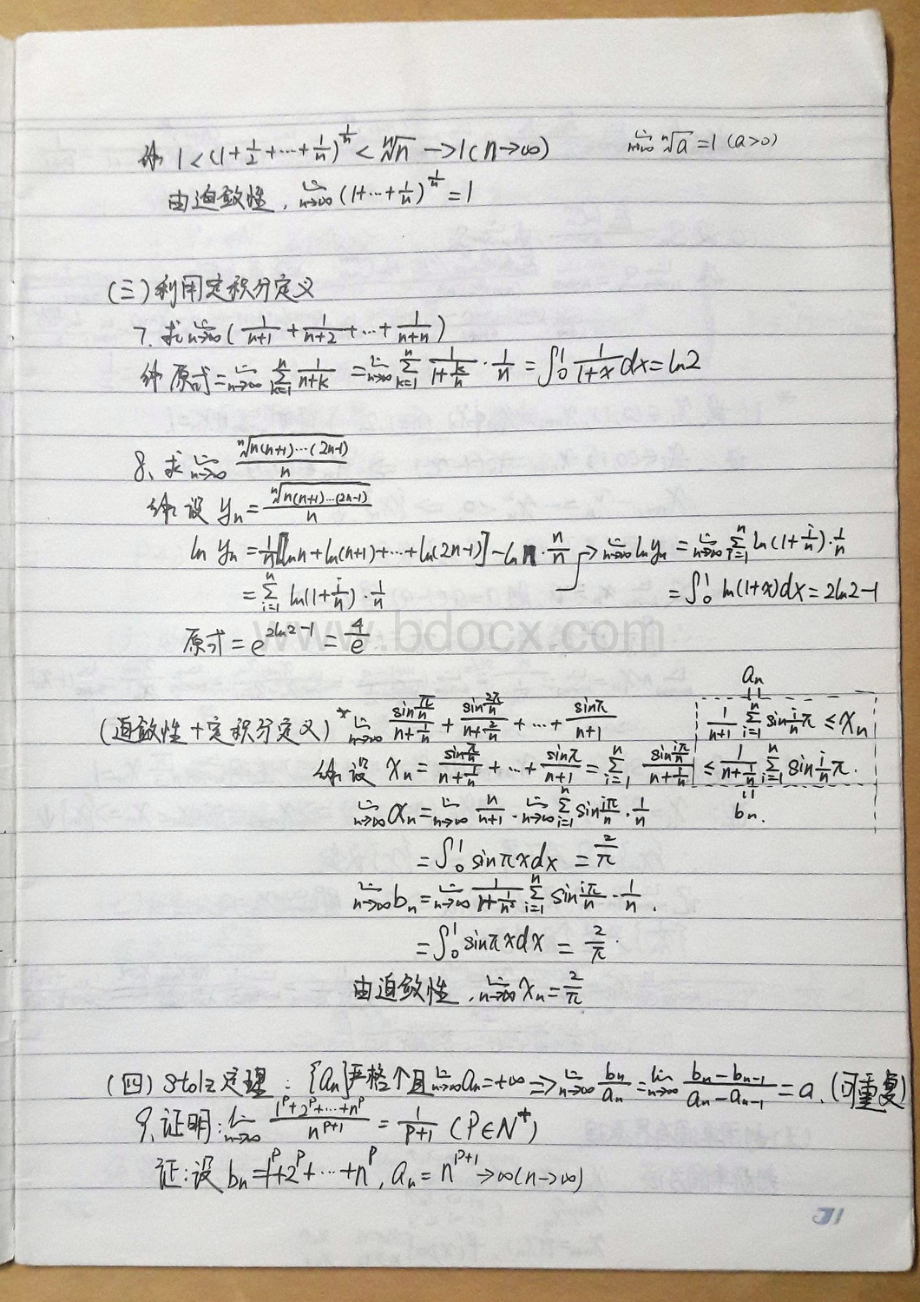 解 1<(1+1/2+···+1/n)^(1/n)<ⁿ√n→1(n→∞) lim n→∞ ⁿ√a=1(a>0)
由迫敛性, lim n→∞ (1+···+1/n)^(1/n)=1
(三)利用定积分定义
7. 求lim n→∞ (1/(n+1)+1/(n+2)+···+1/(n+n))
解 原式=lim n→∞ ∑_{k=1}^{n} 1/(n+k) =lim n→∞ ∑_{k=1}^{n} 1/(1+k/n)·1/n =∫₀¹ 1/(1+x) dx=ln2
8. 求 lim n→∞ ⁿ√(n(n+1)···(2n-1))/n
解:设 yₙ=ⁿ√(n(n+1)···(2n-1))/n
ln yₙ=1/n[lnn+ln(n+1)+···+ln(2n-1)]-ln n·n/n → lim n→∞ ln yₙ=lim n→∞ ∑_{i=1}^{n} ln(1+i/n)·1/n
=∑_{i=1}^{n} ln(1+i/n)·1/n =∫₀¹ ln(1+x)dx=2ln2-1
原式=e^(2ln2-1)=4/e
www.bdocx.com
aₙ
(迫敛性+定积分定义)* lim n→∞ sin(π/n)/(n+1/n)+sin(2π/n)/(n+2/n)+···+sinπ/(n+1) 1/(n+1) ∑_{i=1}^{n} sin(i/n)π≤Xₙ
解 设 Xₙ=sin(π/n)/(n+1/n)+···+sinπ/(n+1)=∑_{i=1}^{n} sin(iπ/n)/(n+i/n) ≤1/(n+1/n) ∑_{i=1}^{n} sin(i/n)π.
bₙ.
lim n→∞ aₙ=lim n→∞ n/(n+1)·lim n→∞ ∑_{i=1}^{n} sin(iπ/n)·1/n
=∫₀¹ sinπxdx=2/π
lim n→∞ bₙ=lim n→∞ 1/(1+1/n²) ∑_{i=1}^{n} sin(iπ/n)·1/n.
=∫₀¹ sinπxdx=2/π.
由迫敛性,lim n→∞ Xₙ=2/π
(四)Stolz定理:{aₙ}严格个且lim n→∞ aₙ=+∞⇒lim n→∞ bₙ/aₙ=lim n→∞ (bₙ-bₙ₋₁)/(aₙ-aₙ₋₁)=a.(可重复)
9. 证明:lim n→∞ (1^p+2^p+···+n^p)/n^(p+1)=1/(p+1) (P∈N⁺)
证:设bₙ=1^p+2^p+···+n^p, aₙ=n^(p+1)→∞(n→∞)